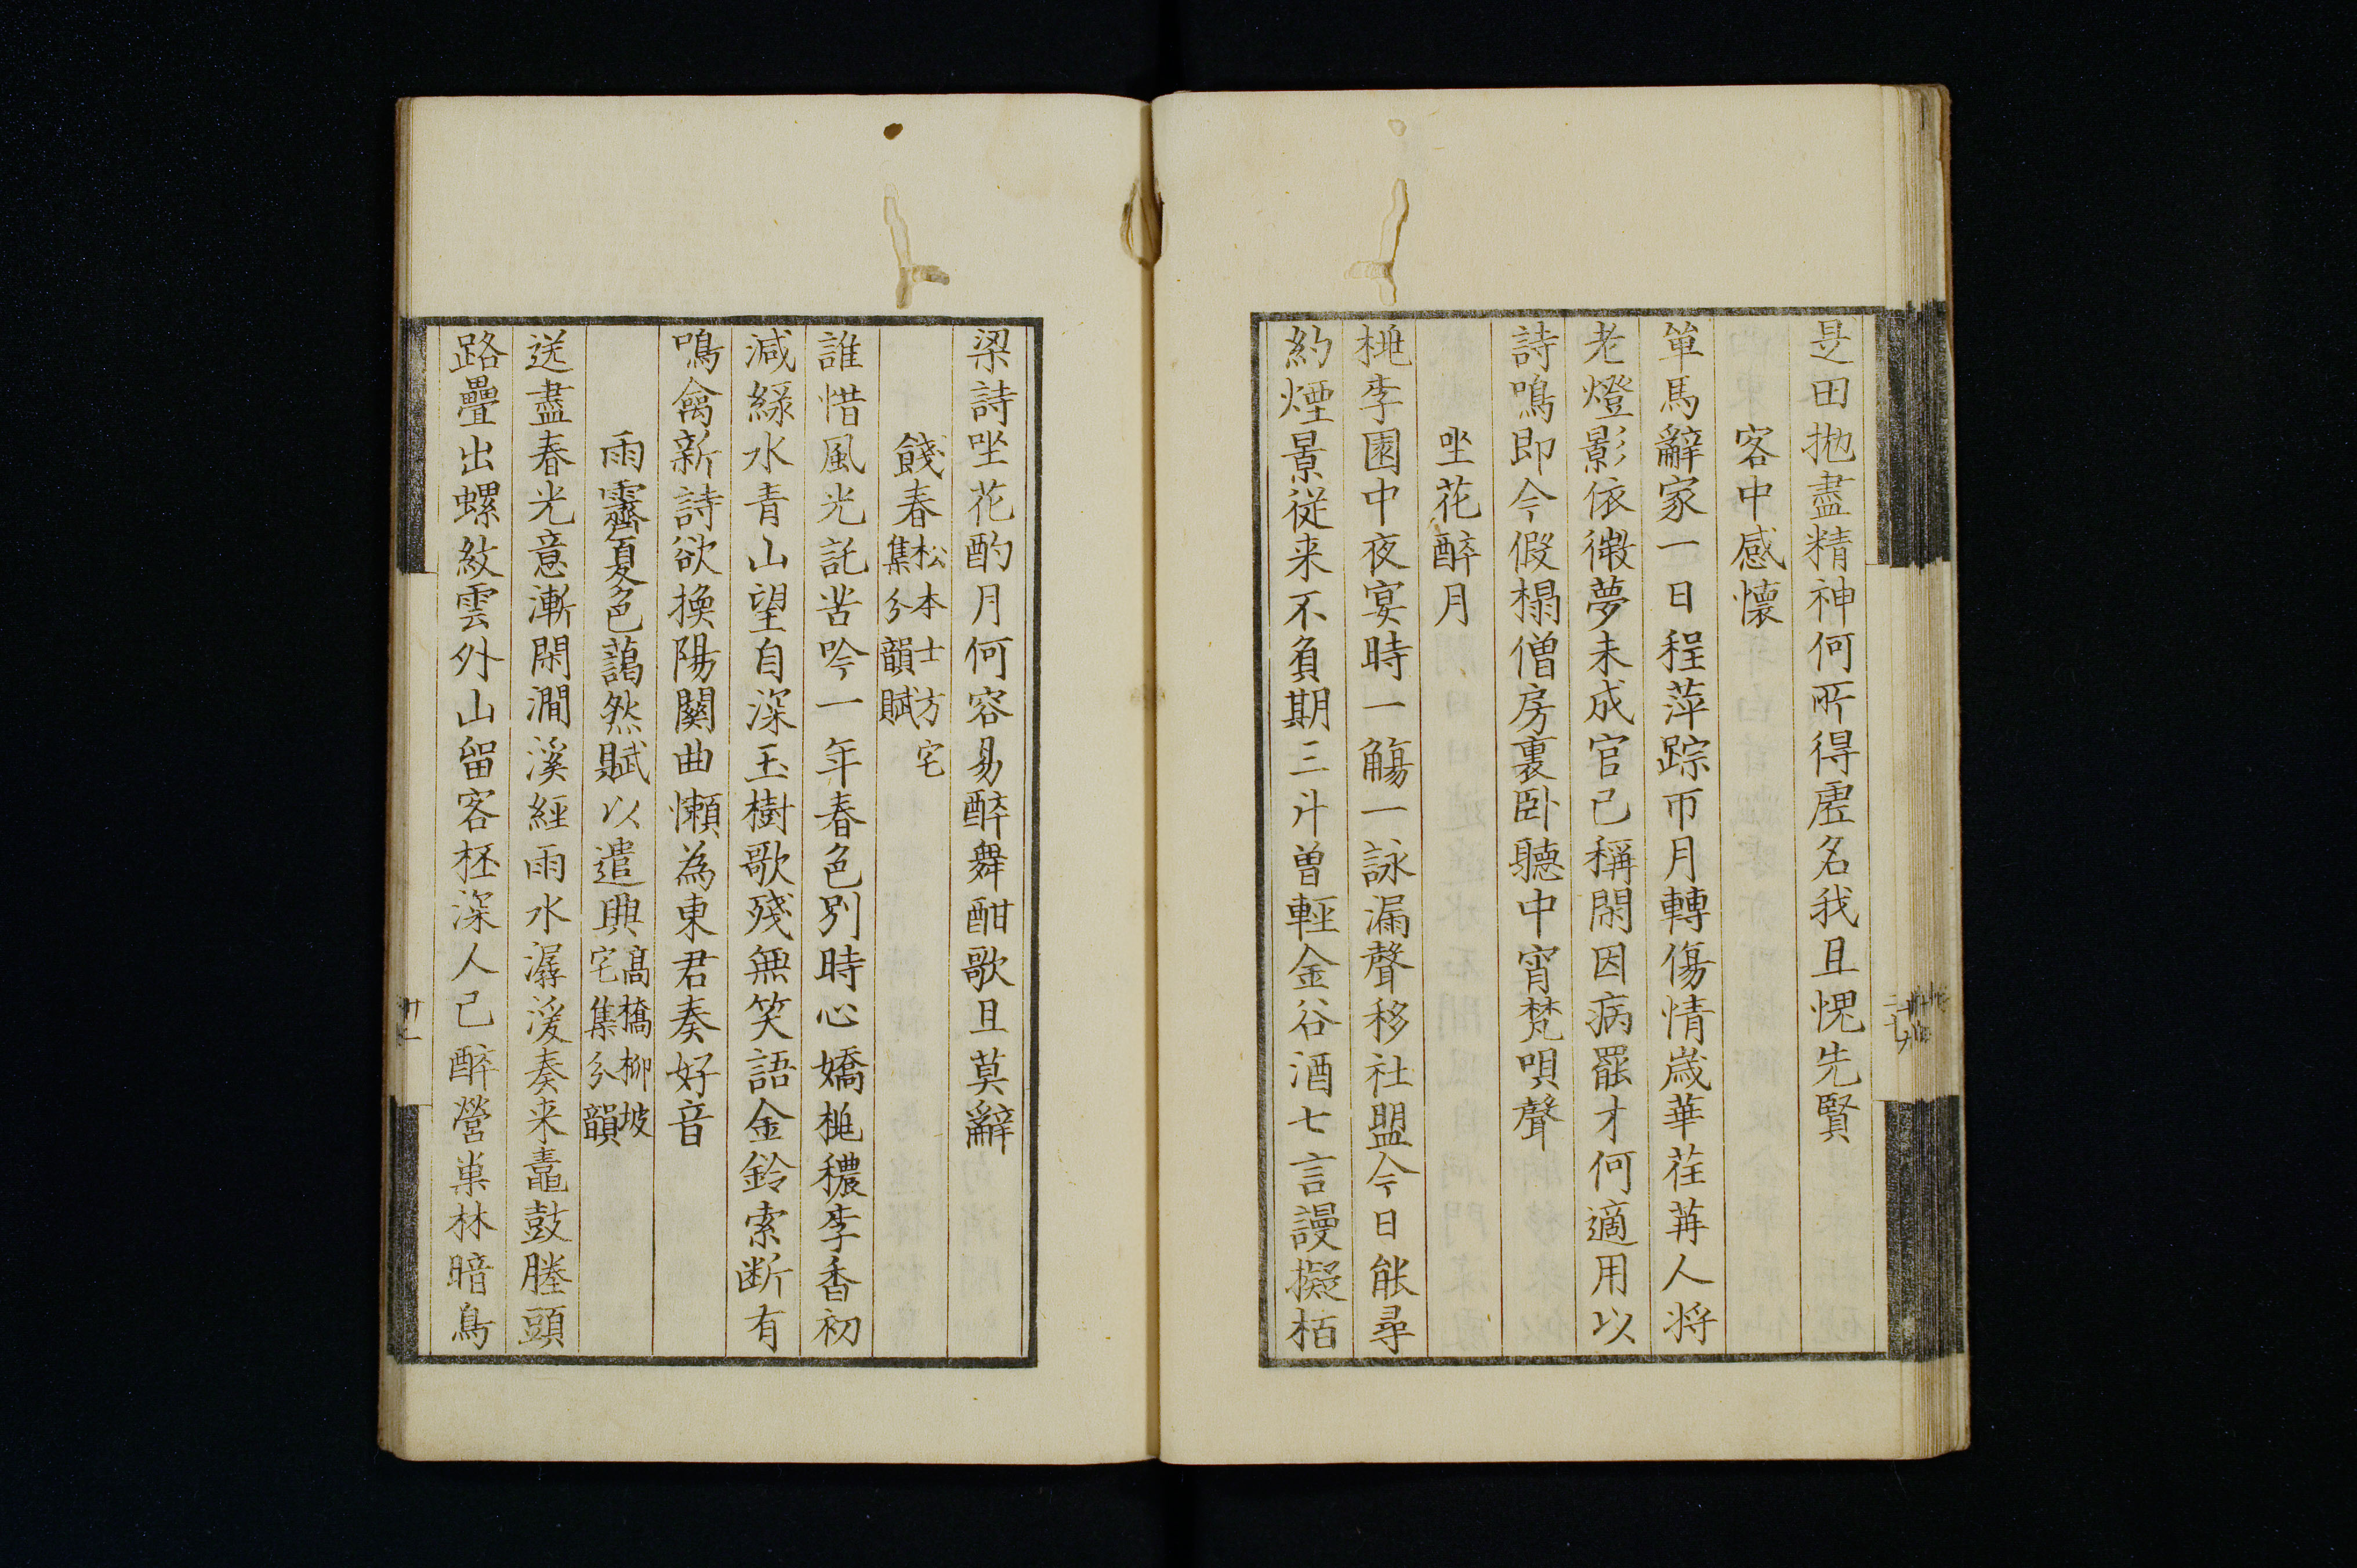 是田抛盡精神何所得虚名我且愧先賢
客中感懐
単馬辭家一日程萍踪帀月轉傷情歳華荏苒人将
老燈影依微夢未成官已稱閑因病罷才何適用以
詩鳴即今假榻僧房裏卧聽中宵梵唄聲
坐花醉月
桃李園中夜宴時一觴一詠漏聲移社盟今日能尋
約煙景従来不負期三斗曽輕金谷酒七言謾擬栢
梁詩坐花酌月何容易醉舞酣歌且莫辭
餞春松本士方宅集分韻賦
誰惜風光託苦吟一年春色別時心嬌桃穠李香初
減緑水青山望自深玉樹歌殘無笑語金鈴索断有
鳴禽新詩欲換陽關曲懶為東君奏好音
雨霽夏色藹然賦以遣興高橋柳坡宅集分韻
送盡春光意漸閑澗溪經雨水潺湲奏来鼃鼓塍頭
路疊出螺紋雲外山留客柸深人已醉營巣林暗鳥
廿一